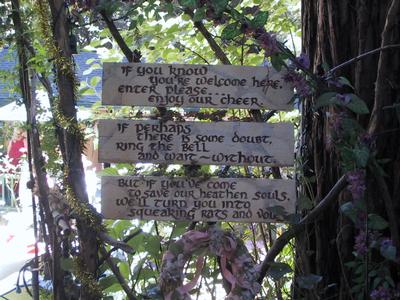 If you know
you're welcome here,
enter please....
enjoy our cheer.
If perhaps
there is some doubt,
ring the bell
and wait~without.
But if you've come
to save our heathen souls,
we'll turn you into
squeaking rats and